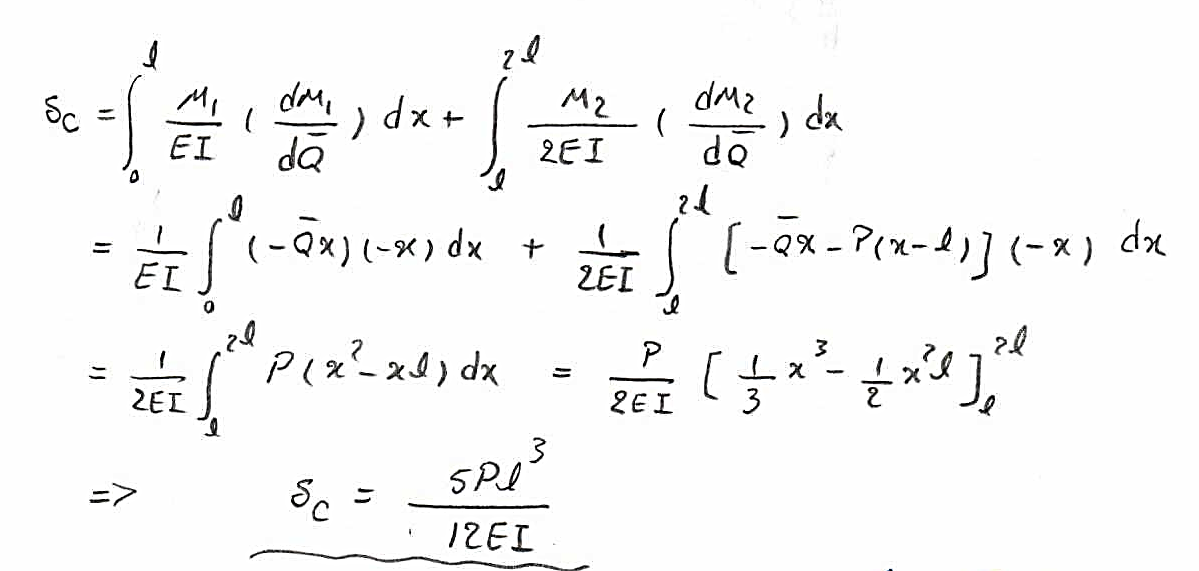 δ_C = ∫_0^l M_1/EI (dM_1/dQ̄) dx + ∫_l^{2l} M_2/2EI (dM_2/dQ̄) dx
= 1/EI ∫_0^l (-Q̄x)(-x) dx + 1/2EI ∫_l^{2l} [-Q̄x - P(x-l)](-x) dx
= 1/2EI ∫_l^{2l} P(x^2 - xl) dx = P/2EI [1/3 x^3 - 1/2 x^2 l]_l^{2l}
=> δ_C = 5Pl^3/12EI